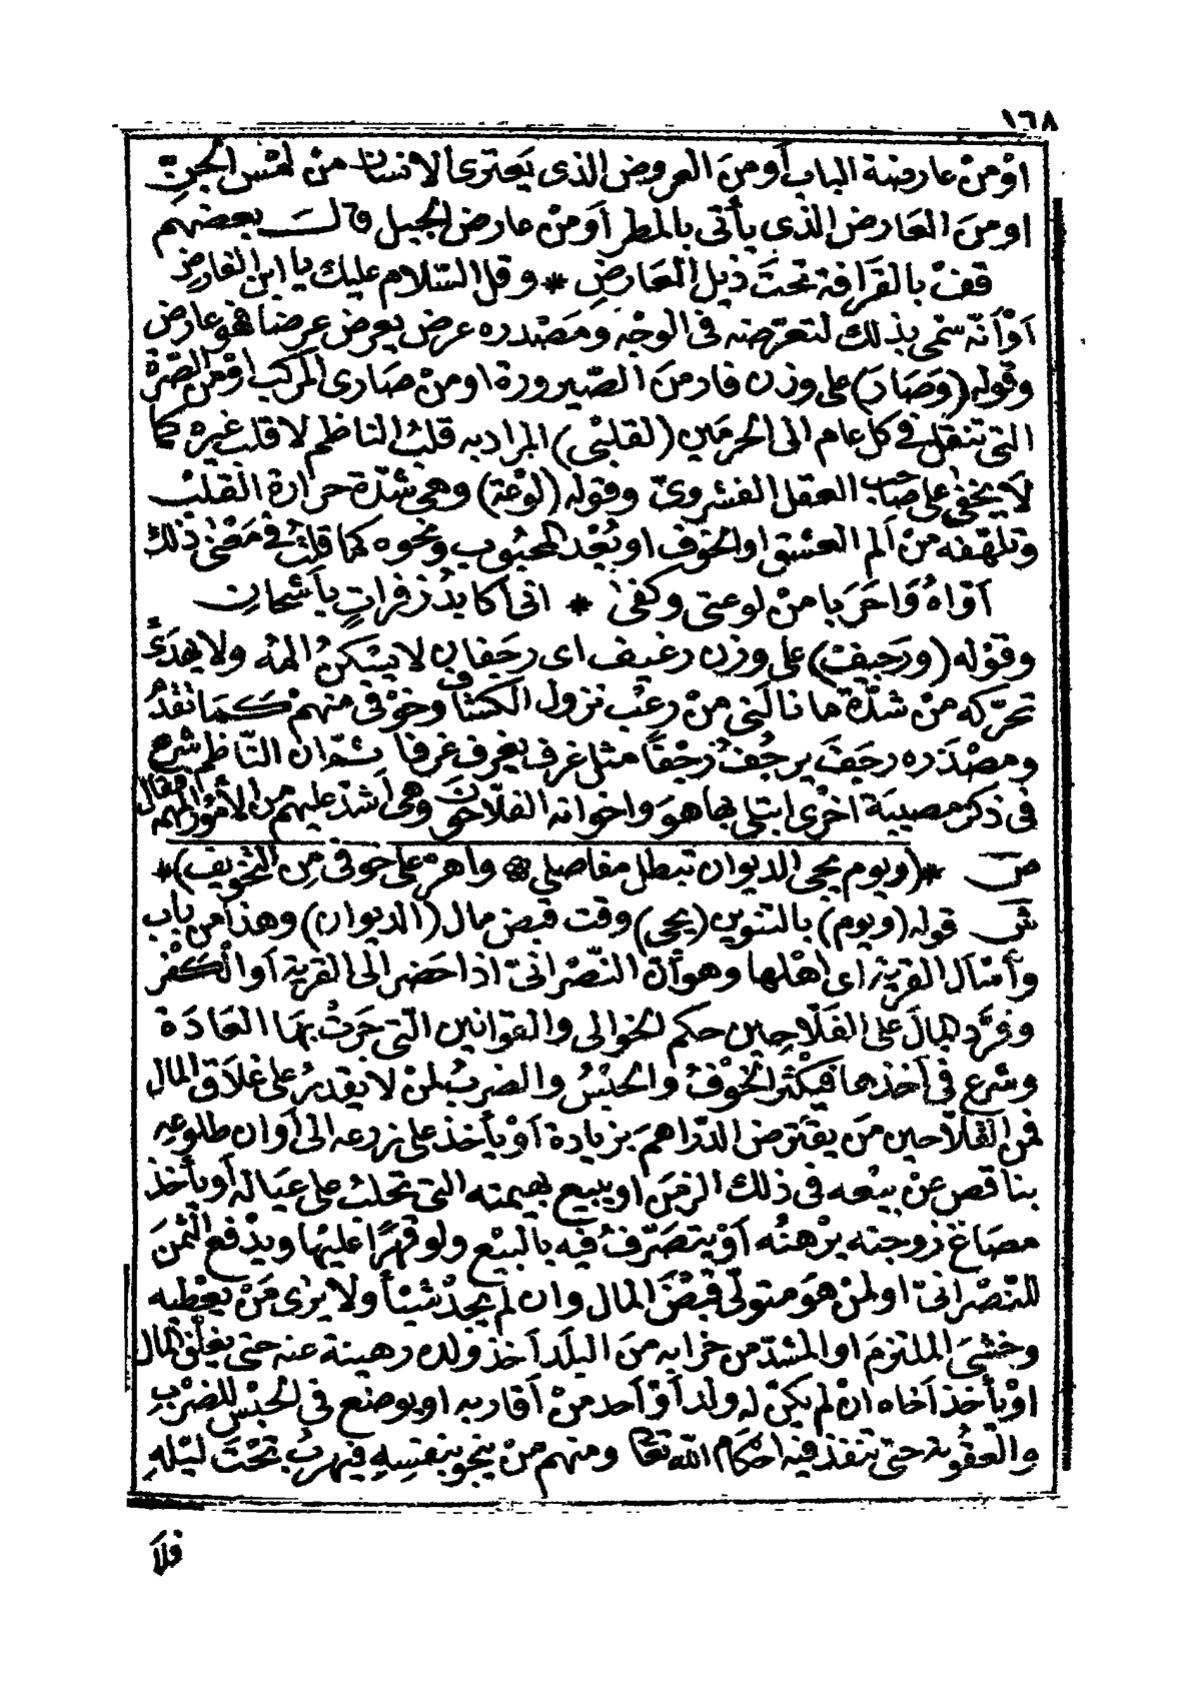 ١٦٨
اوْ مِنْ عارضة الباب أومِنَ العروض الذى يَعترى الانسان مِنْ لمْس الجنّ
او مِنَ العَارض الذى يأتى بالمطر أوْ مِنْ عارض الجبل قالـــ بعضهم
قفْ بالقَرافة تحتَ ذيل العَارضِ * وقل السّلام عليك يا ابن الفارضِ
أوْ أنّه سمّى بذلك لتعرّضه فى الوجْه ومَصْدره عرض يعرض عرضا فهو عارض
وقوله (وَصَارَ) على وزن فار مِنَ الصّيرورة او مِنْ صَارى المركب او مِنَ الصّرة
التى تنقل فى كل عام الى الحرمين (لقلبى) المراد به قلبُ الناظم لا قلب غيره كما
لا يخفى على صَاحب العقل الفشروىّ وقوله (لوْعة) وهى شدّة حرارة القلْب
وتلهّفه مِنْ ألم العشق او الخوف او بُعْد المحبُوب ونحوه كما قلت فى مَعْنى ذلك
أوّاهُ وَاحَرَبا مِنْ لوعتى وكفى * انى أكابدُ زفراتٍ بأشجان
وقوْله (ورَجيف) على وزن رغيف اى رجَفان لا يسْكنُ المهُ ولا يهْدَئُ
تحرّكه مِنْ شدّة ما نالنى مِنْ رعْب نزول الكشاف وخوْفى منهمْ كــمَا تقدّمُ
ومصْدَره رجَفَ يرجُفُ رَجْفًا مثل غرف يغرف غرفا ثمّ ان النّاظم شرع
فى ذكر مصيبَة اخْرى ابتلى بها هوَ واخوانه الفلّاحون وهى أشدّ عليهم من الأمُور المهمّه فقال
صــ *(ويوم يجى الديوان تبطل مفاصلى * واهرّ على حوفى مِن التخويف)*
شــ قوله (ويوم) بالتنوين (يجى) وقت قبض مال (الديوان) وهذا من باب
وأسْأل القرية اى اهْلها وهو أنّ النّصْرانىّ اذا حَضر الى القرية أو الكَفْر
وفرَّد المالَ على الفَلّاحِين حكم الخوالى والقوانين التى جَرَتْ بها العَادَة
وشرع فى أخذها فيكْثر الخوْفُ والحبْسُ والضربُ لمنْ لا يقدرُ على غلَاق المال
فمن الفلّاحين مَن يقترض الدّراهمَ بزيادة أوْ يأخذ على زرعه الى أوَان طلوعه
بناقص عنْ بيْعه فى ذلك الزمَن او يبيع بهيمته التى تحلبُ على عيَاله أو يأخذ
مصَاغ زوجته يرْهنُه أوْ يتصَرّفُ فيه بالبيْع ولو قهرًا عليْها ويدْفع الثمنَ
للنّصْرانىّ او لمنْ هوَ متولّى قبْضَ المال وان لم يجدْ شيْئًا ولا يرَى مَنْ يعْطيه
وخشىَ الملتزمَ او المشدّ من خرابه منَ البلَد أخذ ولده رهينة عنه حتى يغلّق المال
اوْ يأخذ أخاه انْ لم يكنْ له ولد أوْ أحد منْ أقاربه او يوضع فى الحبْس للضرْبِ
والعقُوبة حتى تنفذ فيه احْكام الله تعالى ومنهم منْ ينجو بنفسِهِ فيهربُ تحْتَ ليْلهِ
فلَا